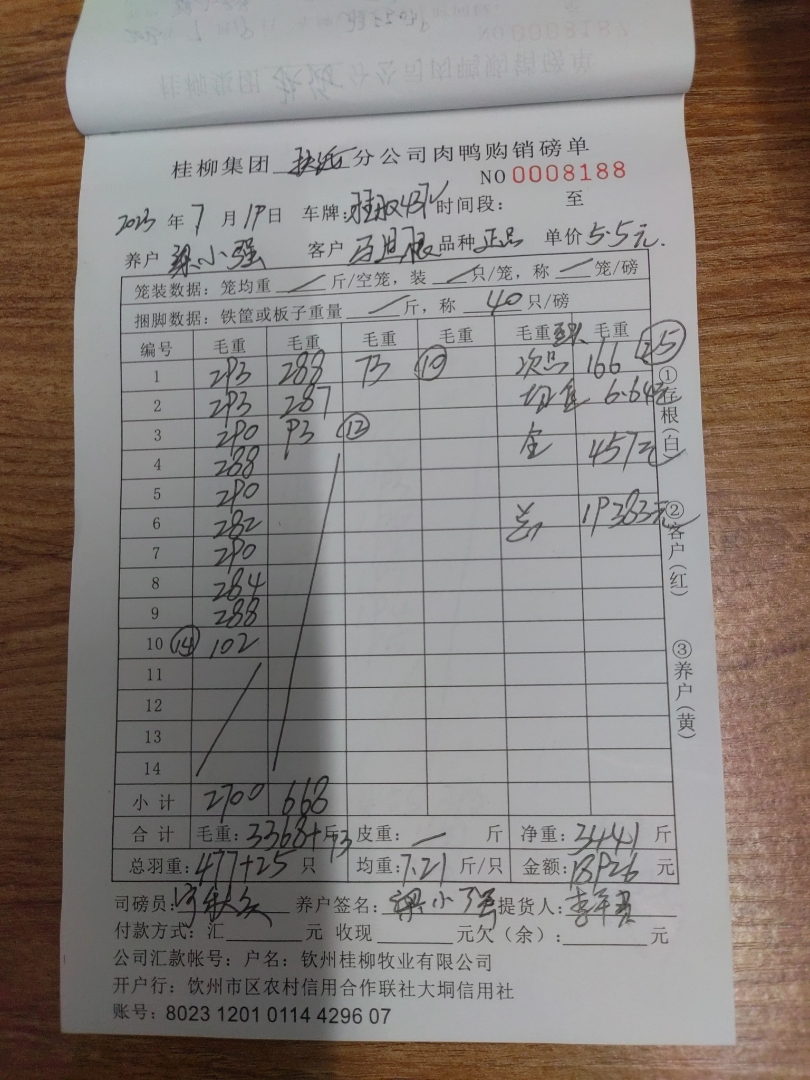 桂柳集团 分公司肉鸭购销磅单
NO 0008188
2023 年 7 月 19 日 车牌: 时间段: 至
养户 梁小强 客户 品种 正品 单价 5.5元.
笼装数据: 笼均重 一 斤/空笼, 装 一 只/笼, 称 一 笼/磅
捆脚数据: 铁筐或板子重量 一 斤, 称 40 只/磅
编号 毛重 毛重 毛重 毛重 毛重 毛重
1 293 288 73 ⑩ 次品 166 25
2 293 287 均重 6.64
3 290 93 ⑫ 金 457元
4 288
5 290
6 282 总 19383元
7 290
8 284
9 288
10 ⑭ 102
11
12
13
14
小计 2700 668
合计 毛重: 3368+73 斤 皮重: 一 斤 净重: 3441 斤
总羽重: 477+25 只 均重: 7.21 斤/只 金额: 18926 元
司磅员: 养户签名: 梁小强 提货人:
付款方式: 汇 元 收现 元欠(余): 元
公司汇款帐号: 户名: 钦州桂柳牧业有限公司
开户行: 钦州市区农村信用合作联社大垌信用社
账号: 8023 1201 0114 4296 07
①存根(白)
②客户(红)
③养户(黄)